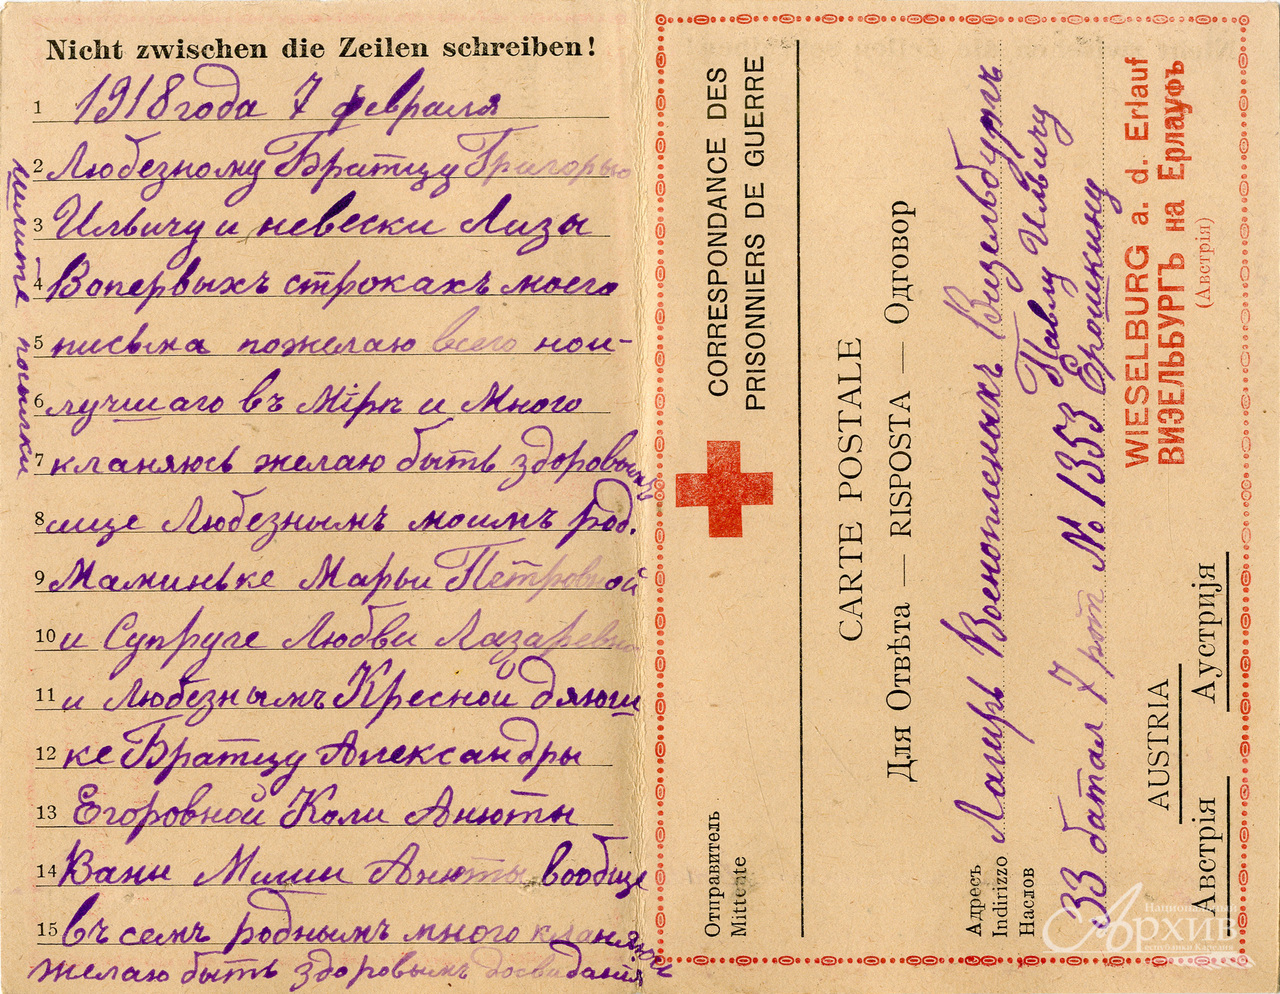 Nicht zwischen die Zeilen schreiben!
1 1918 года 7 февраля
2 Любезному Братцу Григорью
3 Ильвичу и невески Лизы
4 Вопервыхъ строкахъ моего
5 письма пожелаю всего нои-
6 лучшаго въ Мірѣ и Много
7 кланяюсь желаю быть здоровымъ
8 ище Любезнымъ моимъ род.
9 Маминьке Марьи Петровной
10 и Супруге Любви Лазаревной
11 и Любезнымъ Кресной дяюши
12 ке Братцу Александры
13 Егоровной Коли Анюты
14 Вани Миши Анюты вообще
15 въ семъ роднымъ много кланяюсь
желаю быть здоровымъ досвидания
пишите посылки
CORRESPONDANCE DES
PRISONNIERS DE GUERRE
CARTE POSTALE
Для Отвѣта — RISPOSTA — Одговор
Отправитель
Mittente
Адресъ
Indirizzo
Наслов
Лагирь Военопленыхъ Визельбургъ
Павлу Ильвичу
33 батал 7 рот № 1353 Ерошкину
WIESELBURG a. d. Erlauf
ВИЗЕЛЬБУРГЪ на Ерлауфъ
(Австрія)
AUSTRIA
Австрія Аустриjя
Национальный
Архив
Республики Карелия